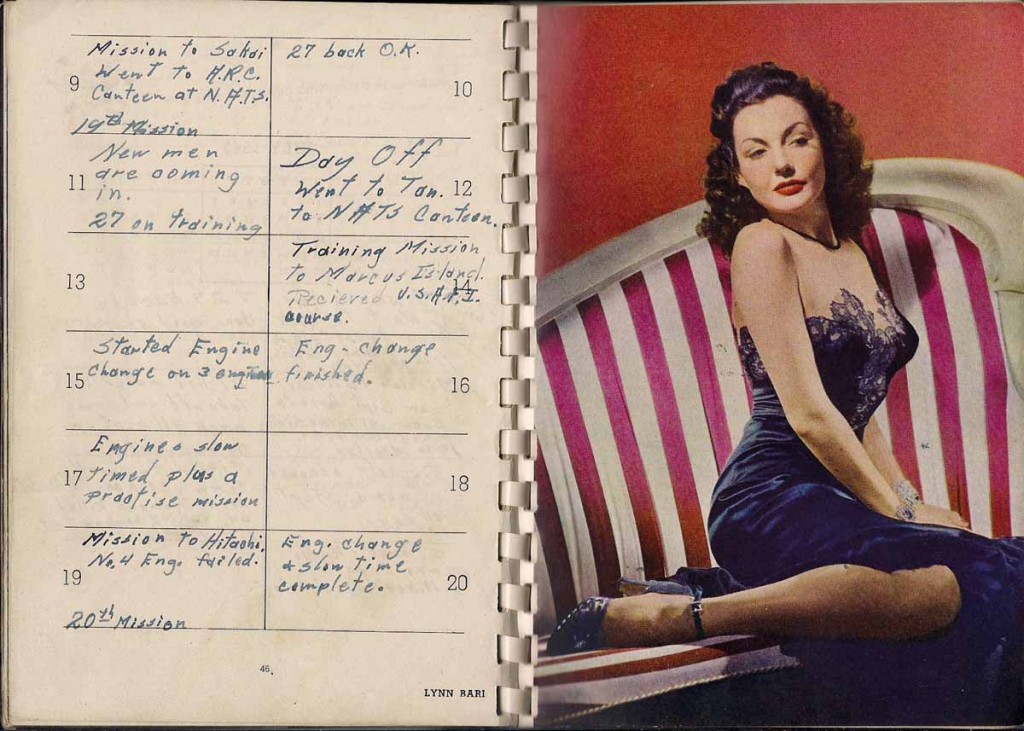 9
Mission to Sakai
Went to A.R.C.
Canteen at N.A.T.S.
19th Mission
27 back O.K.
10
11
New men
are coming
in.
27 on training
Day Off
Went to Tan. 12
to NATS Canteen.
13
Training Mission
to Marcus Island.
14
Recieved U.S.A.F.I.
course.
15
Started Engine
Change on 3 engines
Eng. change
finished.
16
17
Engines slow
timed plus a
practise mission
18
19
Mission to Hitachi.
No. 4 Eng. failed.
20th Mission
Eng. change
+ slow time
complete.
20
46
LYNN BARI